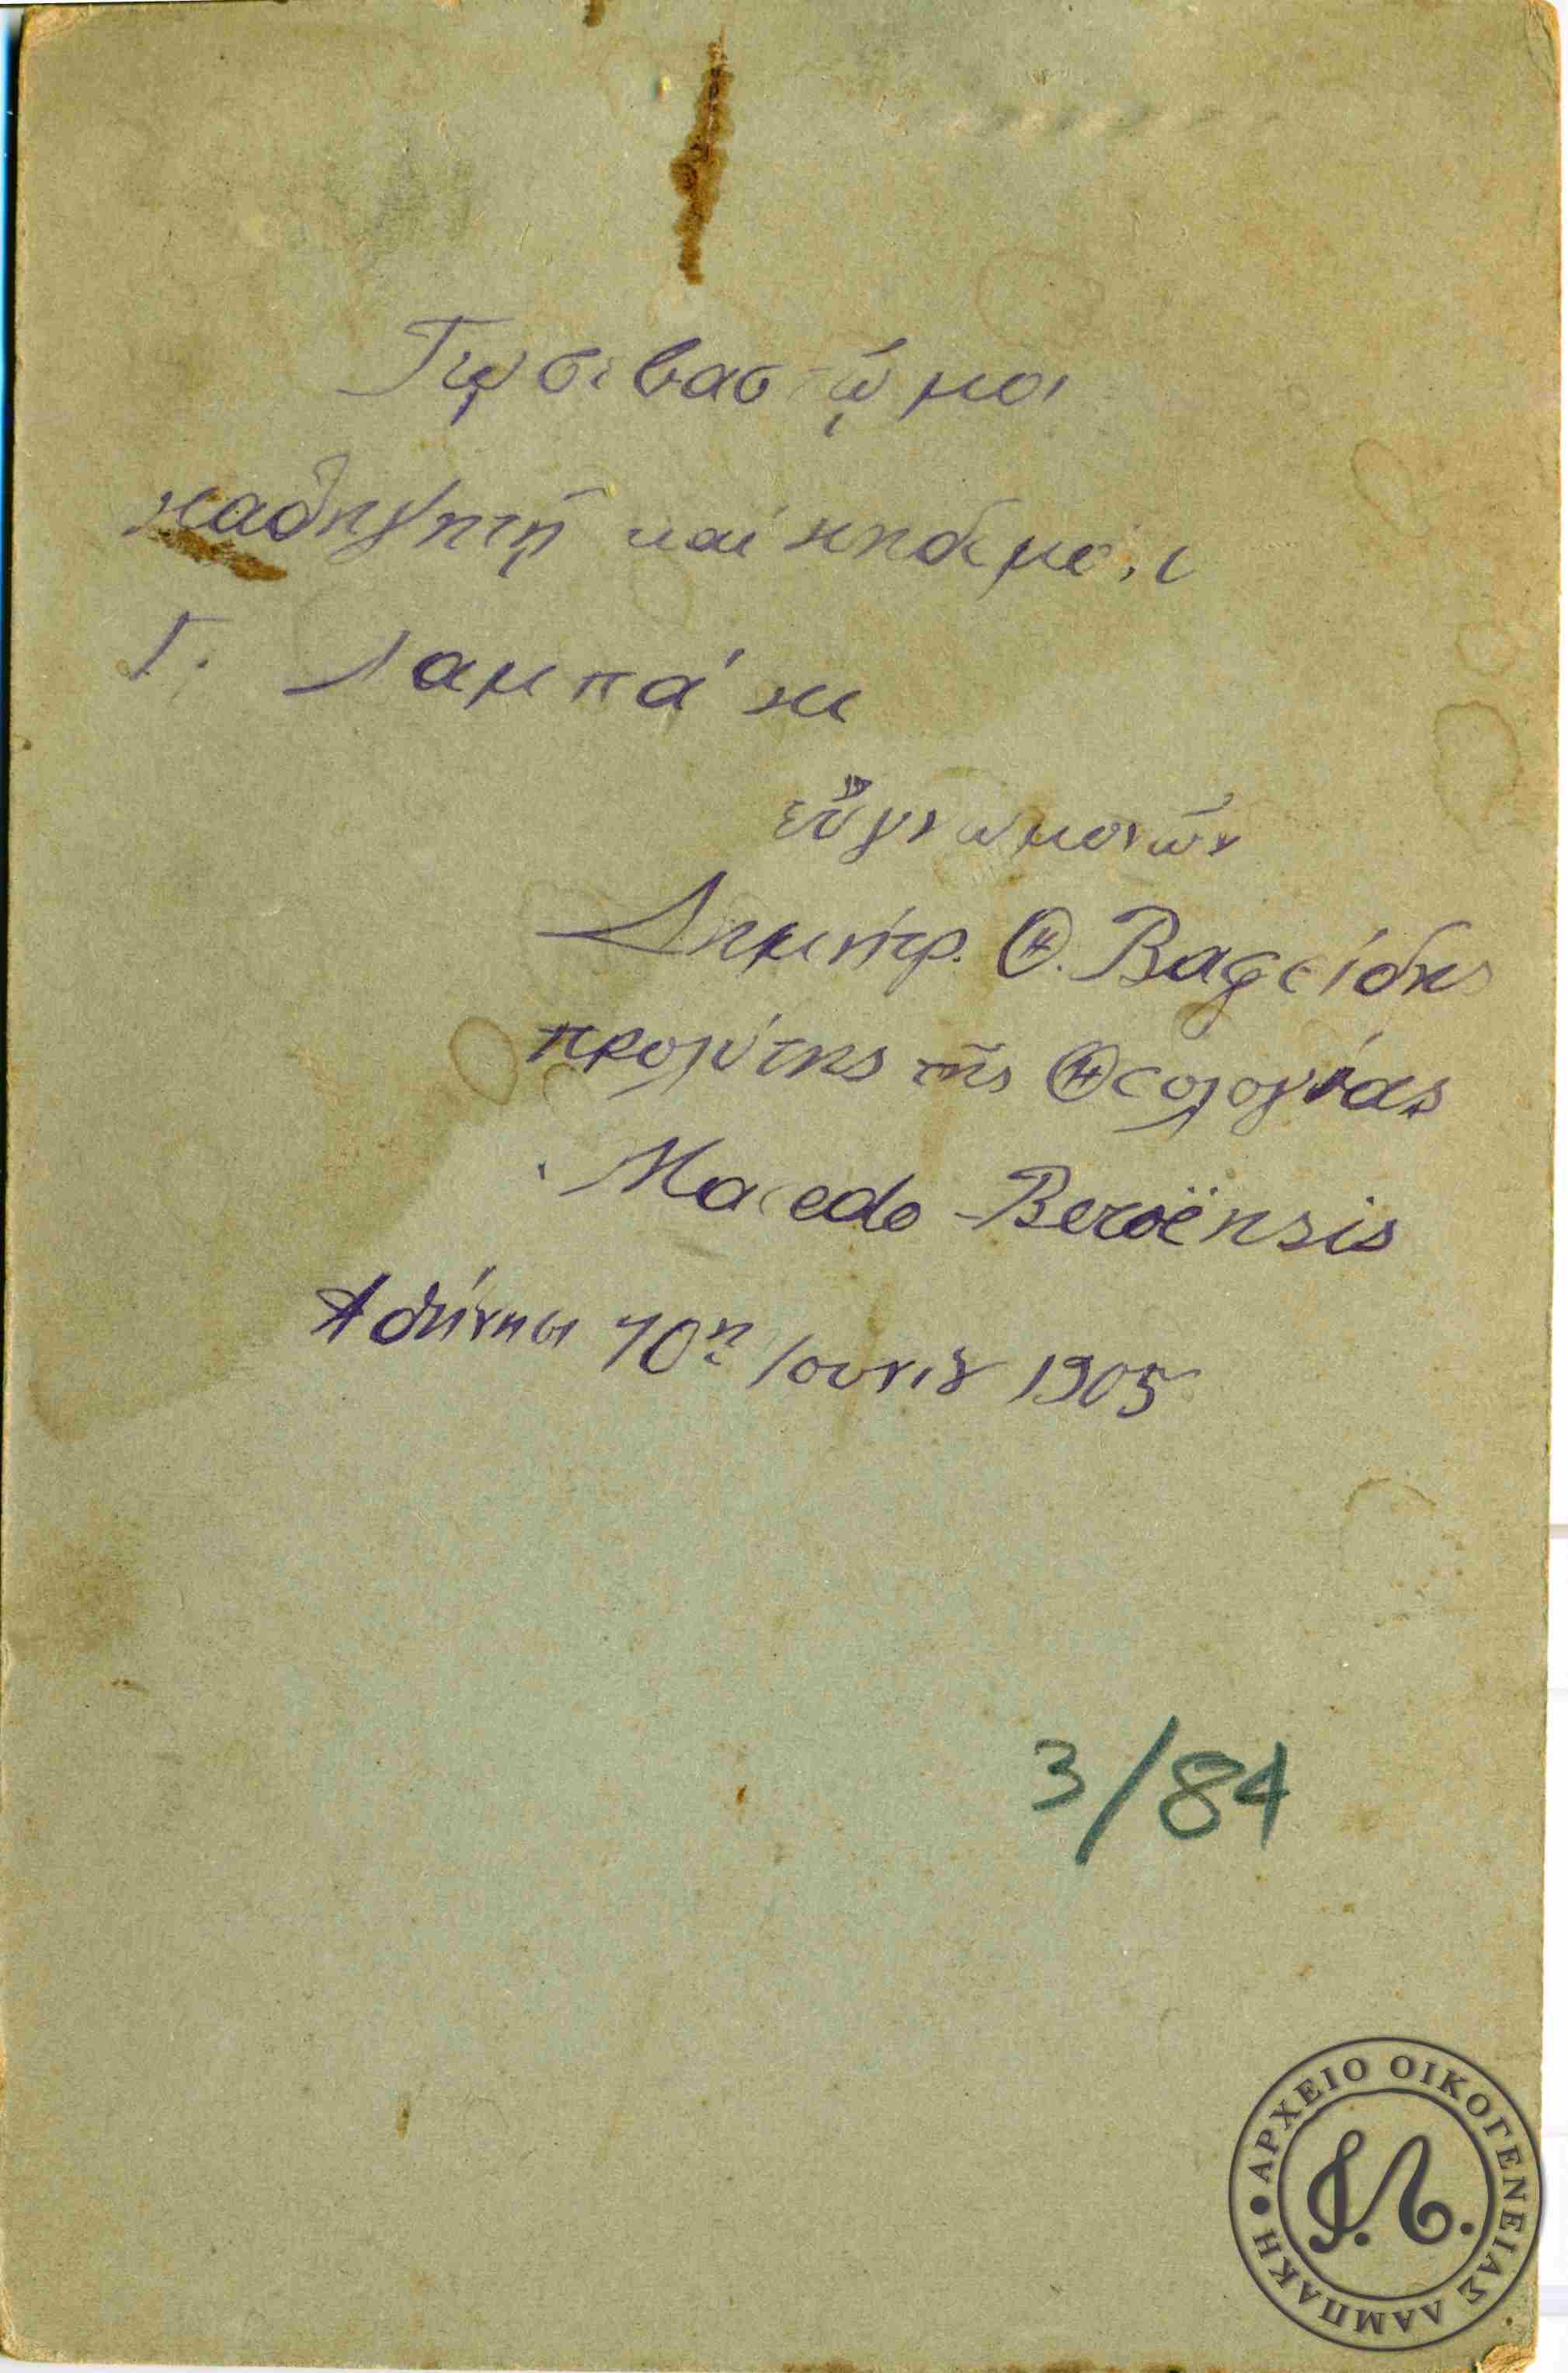 Τῷ σεβαστῷ μοι
καθηγητῇ καὶ κηδεμόνι
Γ. Λαμπάκι
εὐγνωμονῶν
Δημήτρ. Θ. Βαφείδης
προλύτης τῆς Θεολογίας
Macedo-Beroënsis
Ἀθήνησι 10ῃ Ιουνίου 1905
3/84
ΑΡΧΕΙΟ ΟΙΚΟΓΕΝΕΙΑΣ ΛΑΜΠΑΚΗ